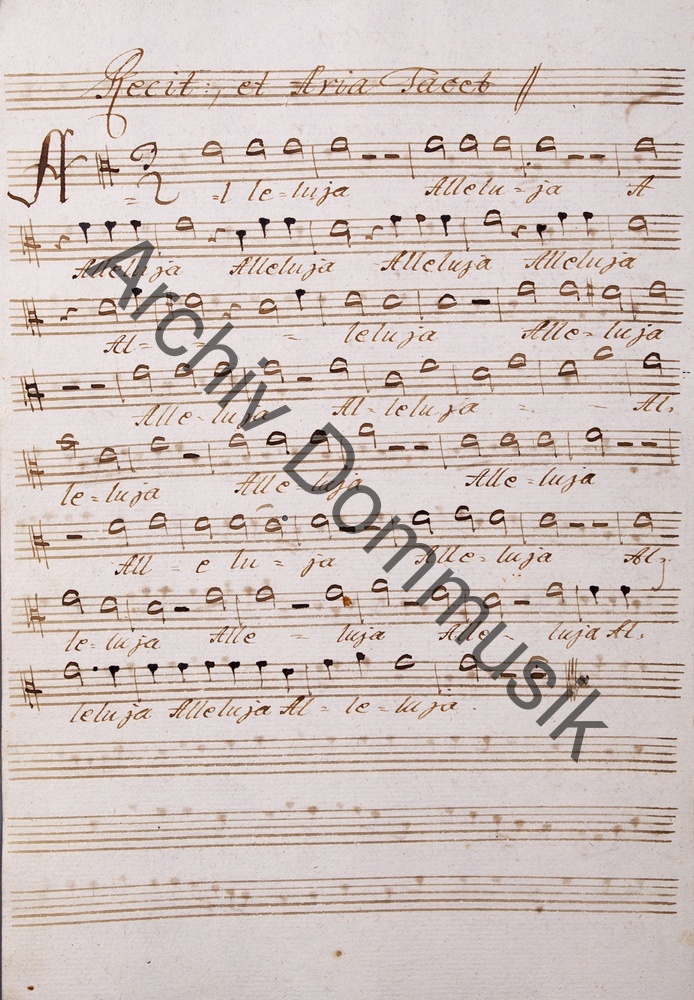 Recit:, et Aria Tacet
A = = l le = luja Allelu = ja A
Alleluja Alleluja Alleluja Alleluja
Al = = = leluja Alle = luja
Alle = luja Al = leluja = . - Al,
le = luja Alle = luja Alle = luja
All = e lu = ja Alle = luja Al,
le = luja Alle = luja Alle = luja Al,
leluja Alleluja Al = le = luja .
Archiv Dommusik